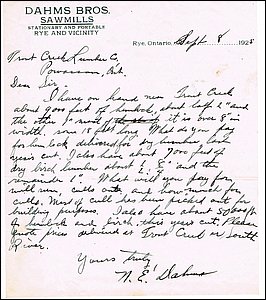 DAHMS BROS.
SAWMILLS
STATIONARY AND PORTABLE
RYE AND VICINITY
Rye, Ontario, Sept 8 1925
Trout Creek Lumber Co,
Powassan, Ont.
Dear Sir
I have on hand near Trout Creek
about 900 feet of hemlock, about half 2" and
the other 1" most of it is over 8" in
width, some 18 feet long. What do you pay
for hemlock delivered for dry lumber last
year's cut. I also have about 700 feet of
dry birch lumber about 2" and the
remainder 1". What will you pay for
mill run, culls out, and how much for
culls. Most of cull has been picked out for
building purpose. I also have about
of hemlock and birch, this year's cut. Please
quote prices delivered at Trout Creek or South
River.
Yours truly
N. E. Dahms